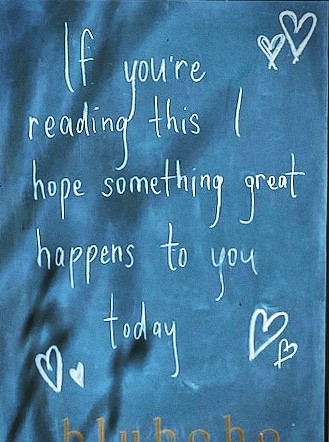 If you're
reading this I
hope something great
happens to you
today